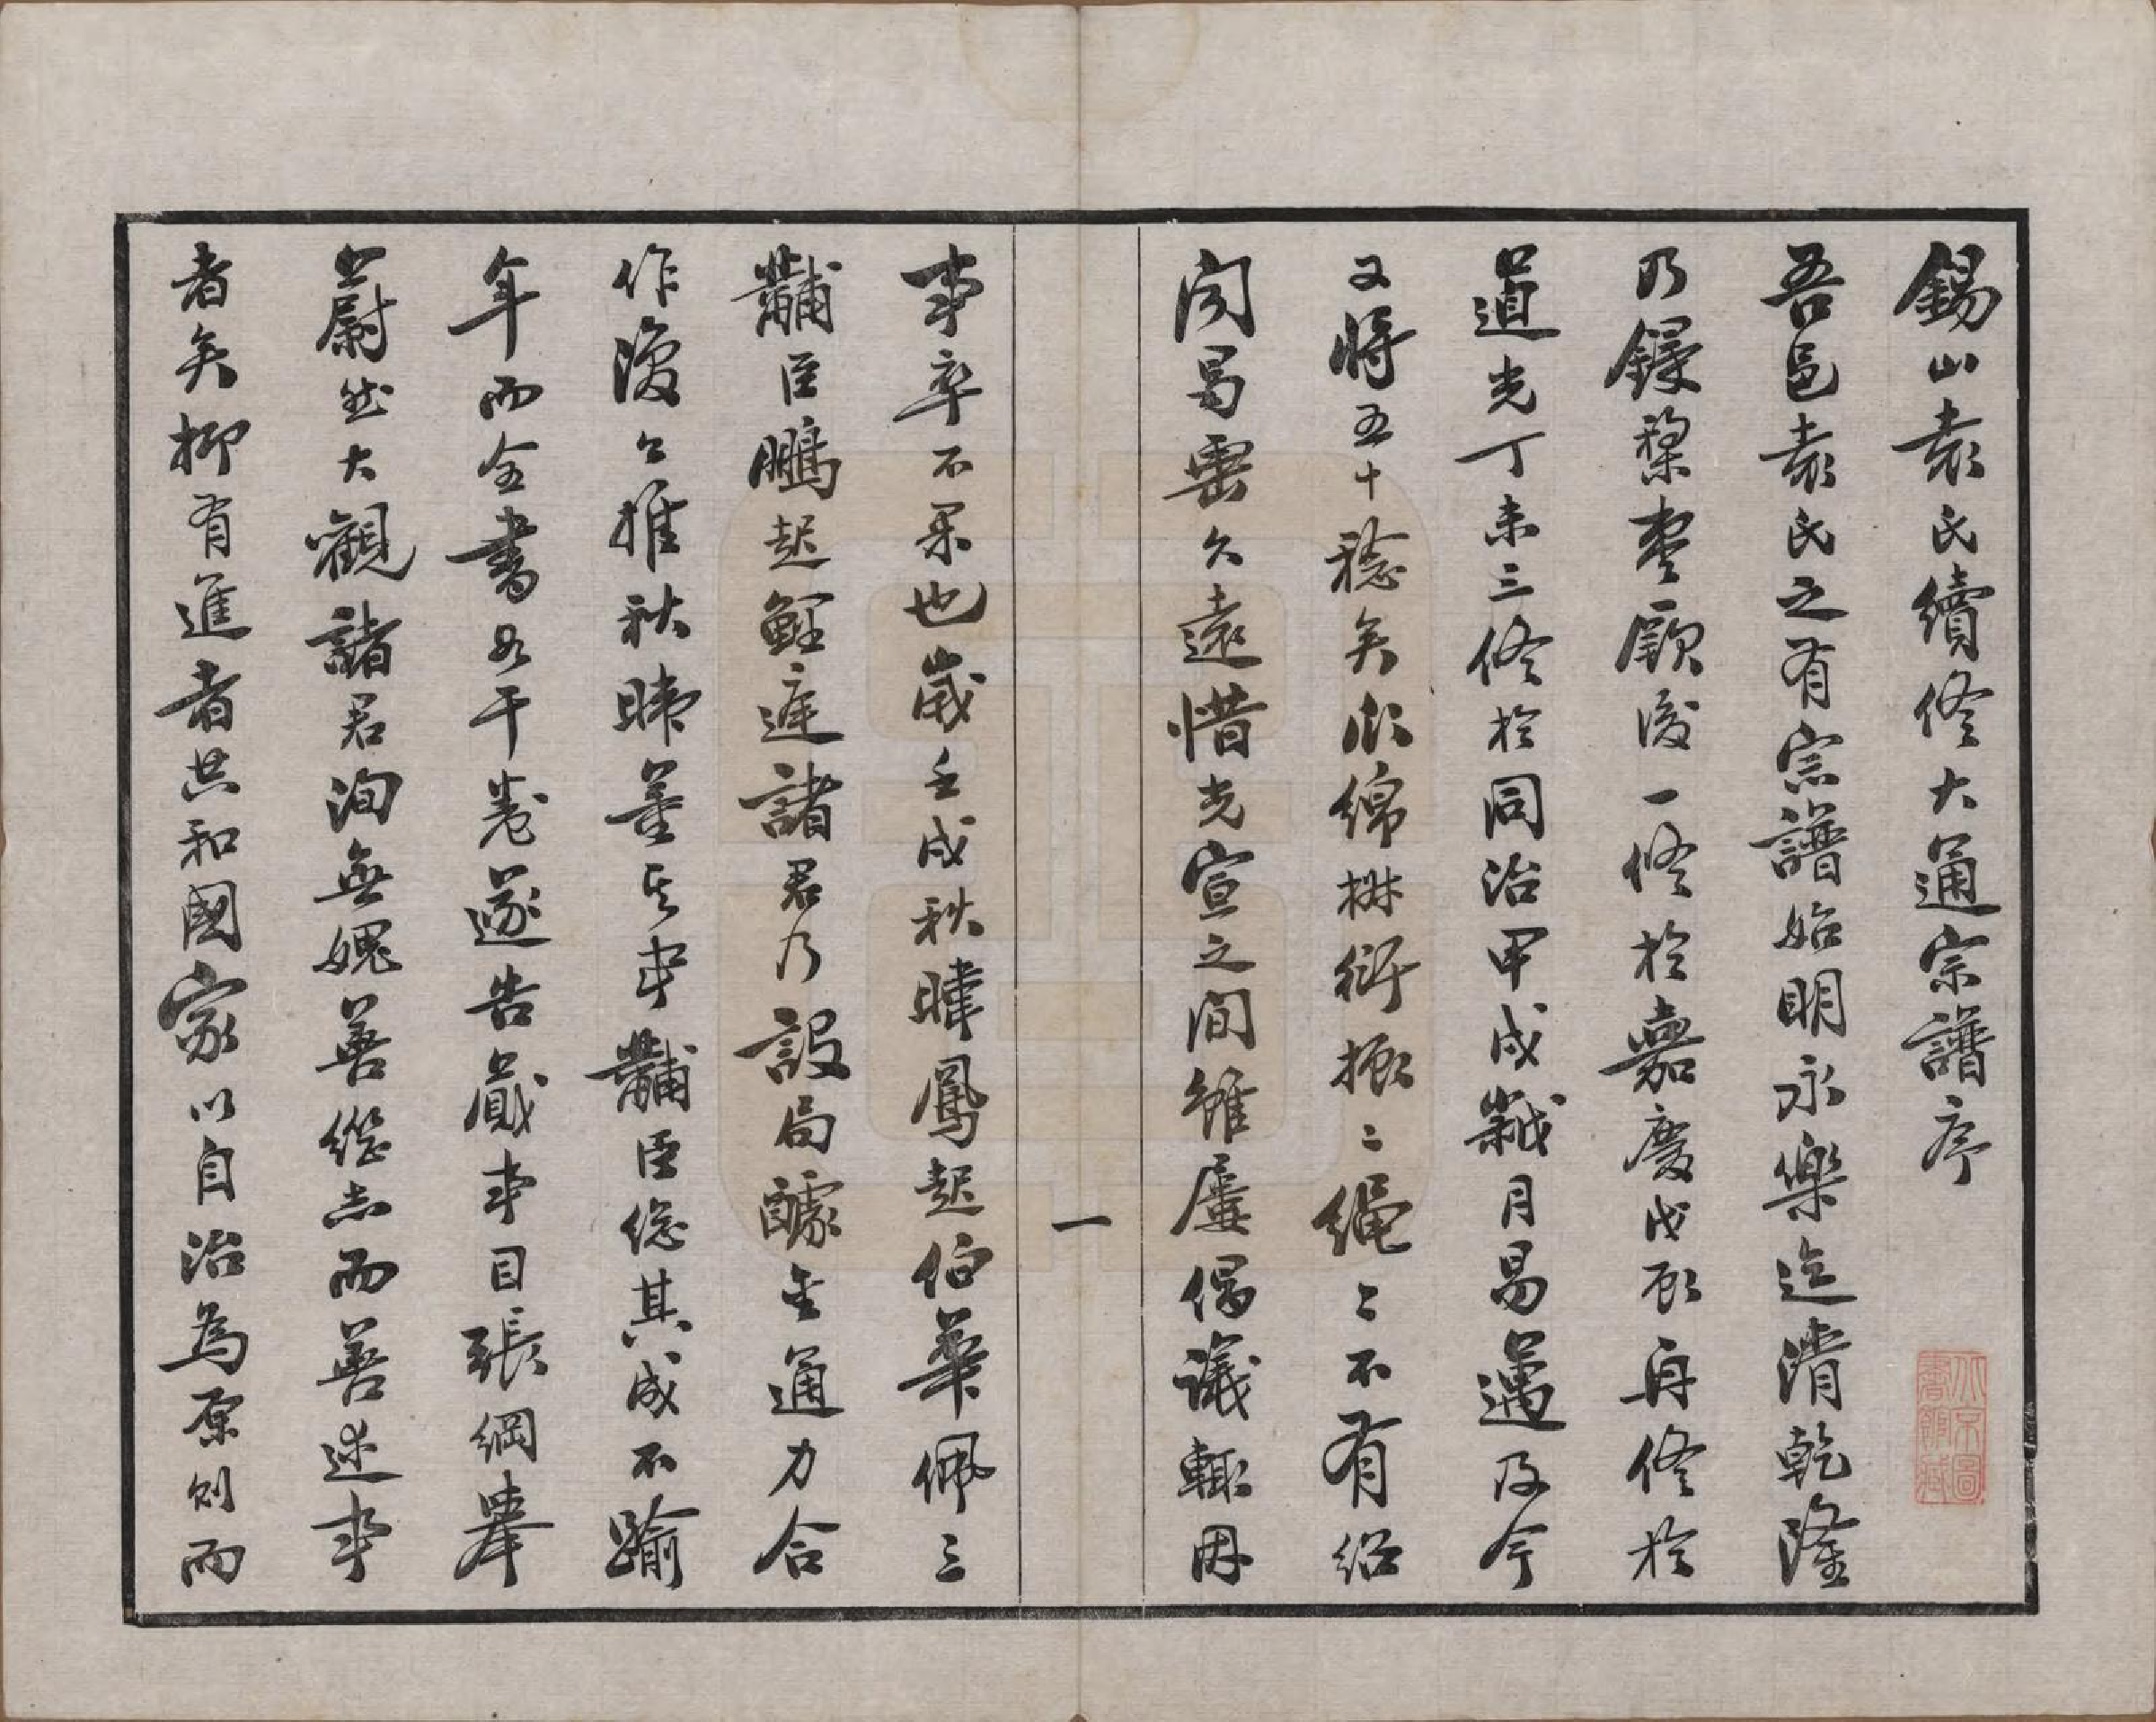 錫山袁氏續修大通宗譜序
吾邑袁氏之有宗譜始明永樂迄清乾隆
乃鋟棃棗厥後一修於嘉慶戊辰再修於
道光丁未三修於同治甲戌歲月曷邁及今
又將五十稔矣瓜緜椒衍振二繩二不有紹
聞曷垂久遠惜光宣之間雖屢倡議輒因
一
事卒不果也歲壬戌秋暐鳳起伯華佩三
黼臣鵬起鯉庭諸君乃設局醵金通力合
作復公推秋暐董其事黼臣總其成不踰
年而全書如干卷遂告蕆事目張綱舉
蔚然大觀諸君洵無媿善繼志而善述事
者矣抑有進者共和國家以自治為原則而